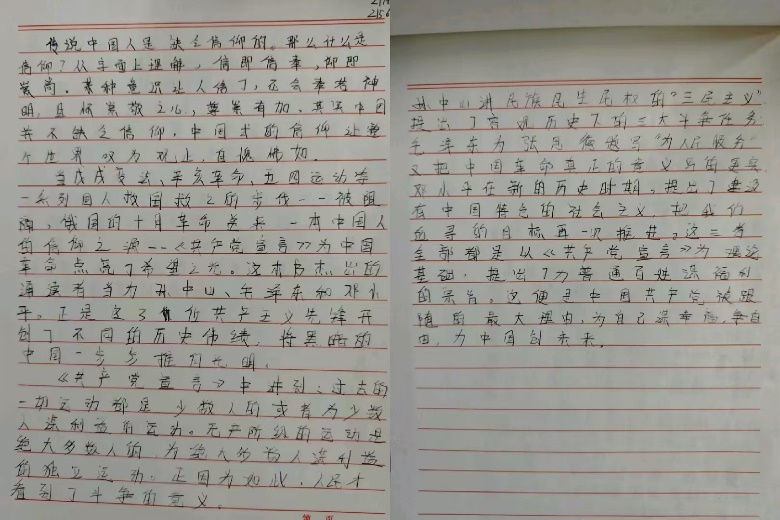 传说中国人是缺乏信仰的。那么什么是
信仰？从字面上理解，信即信奉，仰即
崇尚。某种意识让人信了，还会奉若神
明，且依崇敬之心，尊崇有加。其实中国
并不缺乏信仰，中国式的信仰让整
个世界叹为观止，自愧弗如。
当戊戌变法、辛亥革命、五四运动等
一系列国人救国救亡的步伐一一被阻
俄国的十月革命送来一本中国人
的信仰之源--《共产党宣言》为中国
革命点亮了希望之光。这本书杰出的
诵读者当为孙中山、毛泽东和邓小
平。正是这3位共产主义先锋开
创了不同的历史伟绩，将黑暗的
中国一步步推向光明。
《共产党宣言》中讲到：过去的
一切运动都是少数人的或者为少数
人谋利益的运动。无产阶级的运动是
绝大多数人的，为绝大多数人谋利益
的独立运动。正因为如此，人民才
看到了斗争的意义。
第 页
孙中山讲民族民生民权的“三民主义”
提出了当时历史下的三大斗争任务
毛泽东为张思德题写“为人民服务”
又把中国革命真正的意义写的更亮
邓小平在新的历史时期，提出了建设
有中国特色的社会主义，把我们
的目标再一次推进。这三者
全部都是以《共产党宣言》为理论
基础，提出了为普通百姓谋福利
的宗旨。这便是中国共产党被跟
随的最大理由，为自己谋幸福，争自
由，为中国创未来。